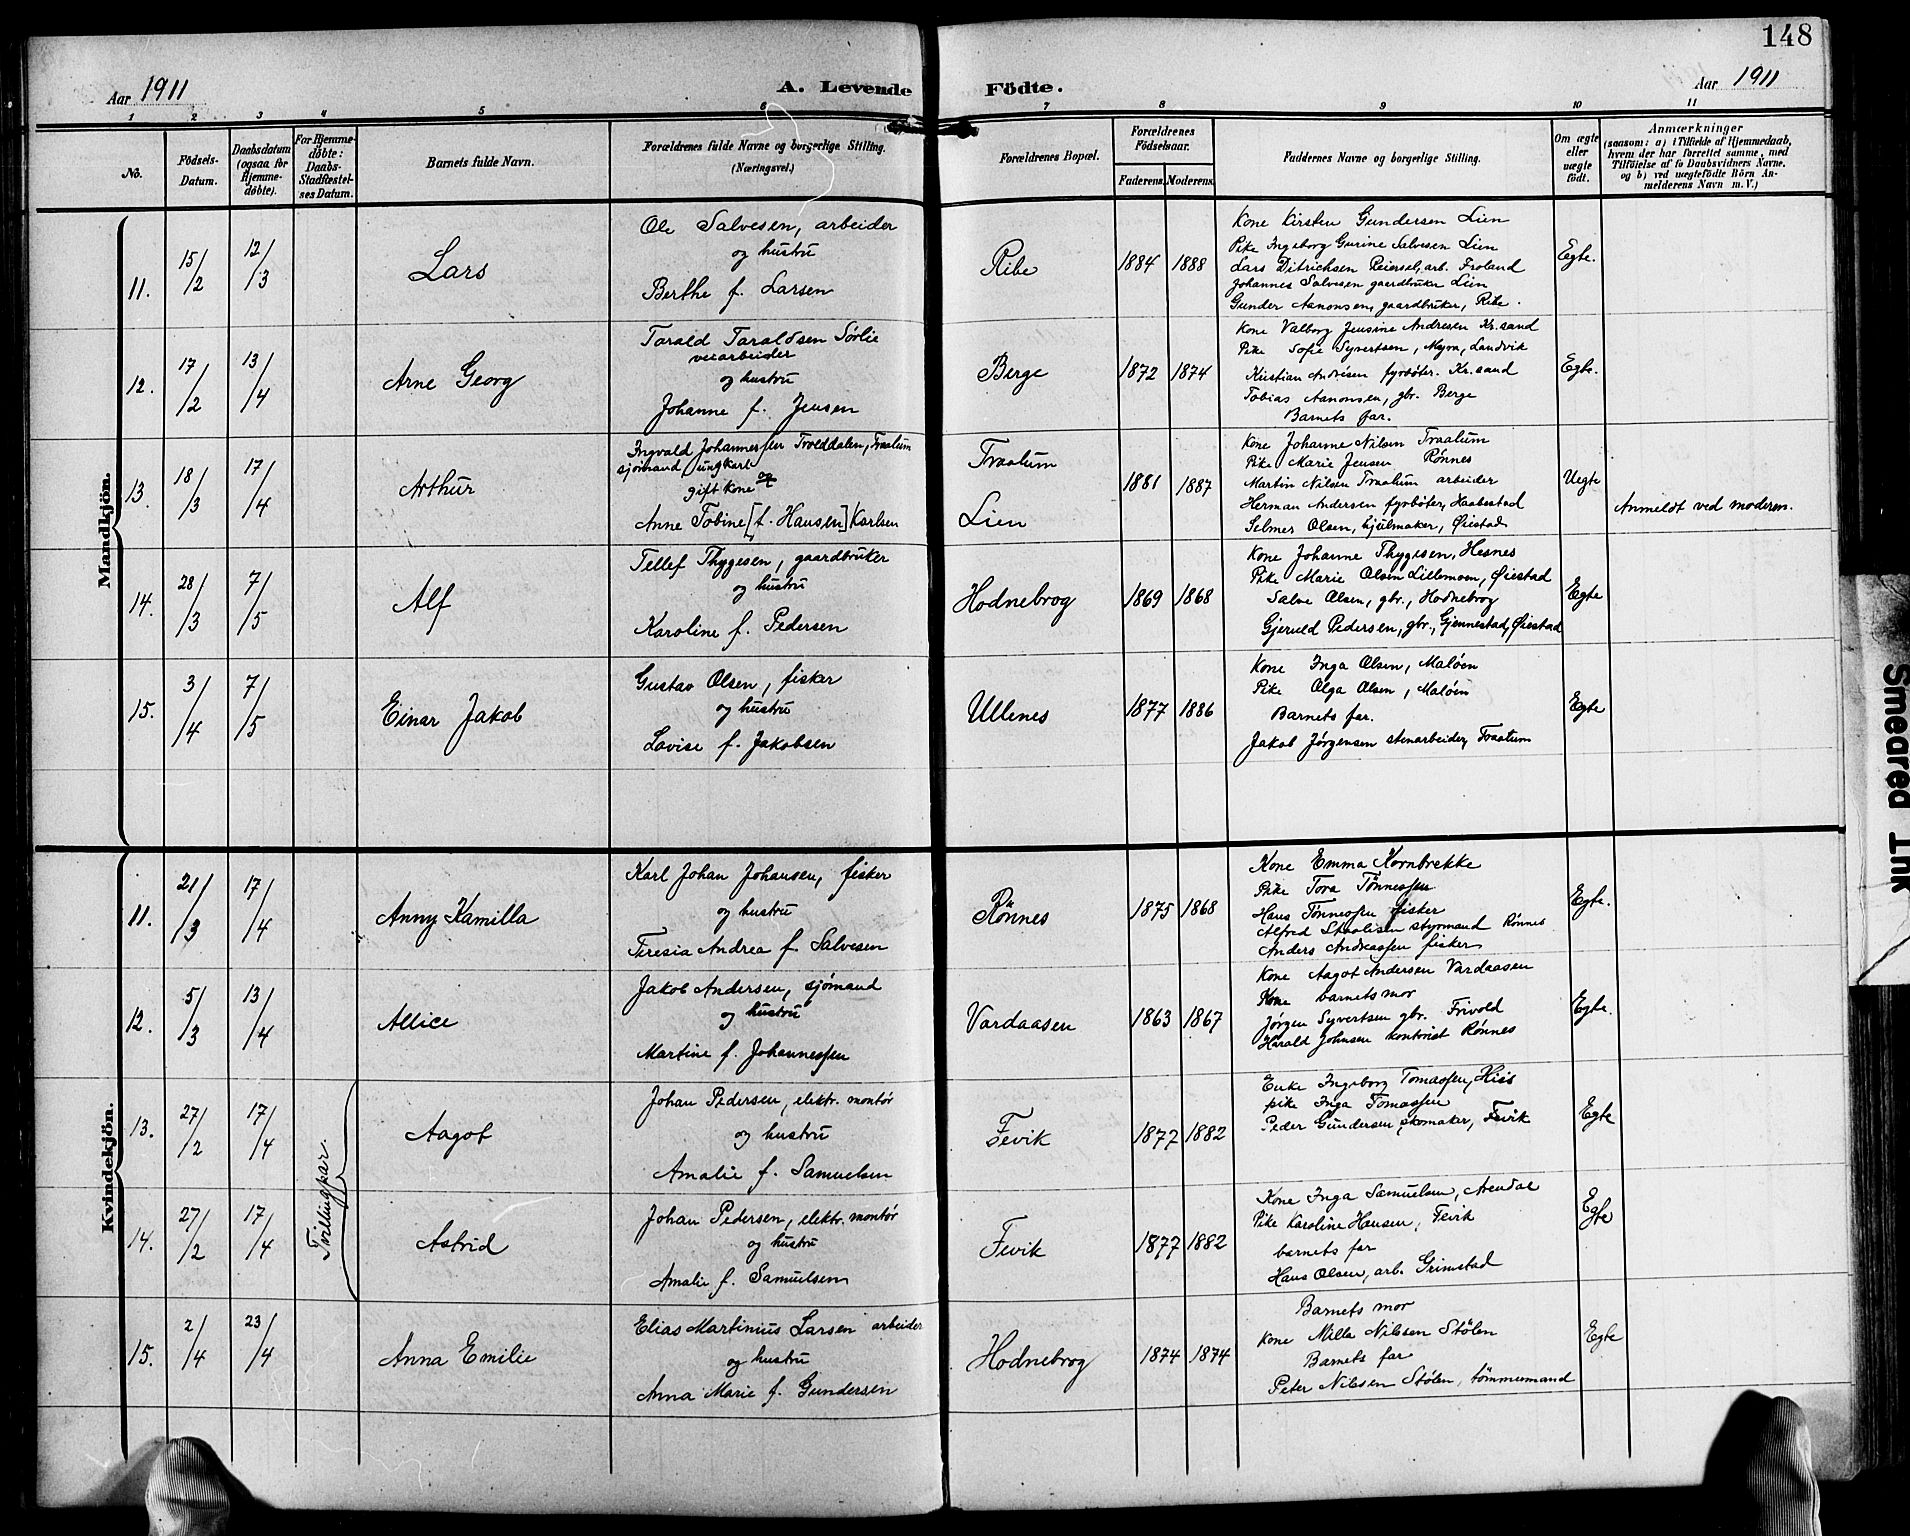 148
Aar 1911
A. Levende
Födte.
Aar 1911
1 2 3 4 5 6 7 8 9 10 11
No.
Födsels-Datum.
Daabsdatum (ogsaa for Hjemme-döbte).
For Hjemme-döbte: Daabs-Stadfæstel-ses Datum.
Barnets fulde Navn.
Forældrenes fulde Navne og borgerlige Stilling.
(Næringsvei.)
Forældrenes Bopæl.
Forældrenes Födselsaar.
Faderens. Moderens.
Faddernes Navne og borgerlige Stilling.
Om ægte eller uægte födt.
Anmærkninger
(saasom: a) i Tilfælde af Hjemmedaab, hvem der har forrettet samme, med Tilföielse af to Daabsvidners Navne, og b) ved uægtefödte Börn An-melderens Navn m. V.)
Mandkjön.
11. 15/2 12/3 Lars
Ole Salvesen, arbeider
og hustru
Berthe f. Larsen
Ribe 1884 1888
Kone Kirsten Gundersen Lien
Pike Ingeborg Gurine Salvesen Lien
Lars Ditrichsen Reiersel, arb. Froland
Johannes Salvesen gaardbruker Lien
Gunder Aanonsen, gaardbruker, Ribe.
Egte.
12. 17/2 13/4 Arne Georg
Tarald Taraldsen Sørlie
veiarbeider
og hustru
Johanne f. Jensen
Berge 1872 1874
Kone Valborg Jensine Andresen Kr.sand
Pike Sofie Syvertsen, Myra, Landvik
Kristian Andresen fyrbøter. Kr.sand
Tobias Aanonsen, gbr. Berge
Barnets far.
Egte.
13. 18/3 17/4 Arthur
Ingvald Johannessen Trolddalen, Traalum
sjømand ungkarl
og
gift kone
Anne Tobine [f. Hansen] Karlsen
Traalum
Lien
1881 1887
Kone Johanne Nilsen Traalum
Pike Marie Jensen Rønnes
Martin Nilsen Traalum arbeider
Herman Andersen fyrbøter, Haabestad
Selmer Olsen, hjulmaker, Øiestad
Uegte
Anmeldt ved moderen.
14. 28/3 7/5 Alf
Tellef Thygesen, gaardbruker
og hustru
Karoline f. Pedersen
Hodnebrog 1869 1868
Kone Johanne Thygesen, Hesnes
Pike Marie Olsen Lillemoen, Øiestad
Salve Olsen, gbr., Hodnebrog
Gjeruld Pedersen, gbr., Gjennestad, Øiestad
Egte
15. 3/4 7/5 Einar Jakob
Gustav Olsen, fisker
og hustru
Lovise f. Jakobsen
Ullenes 1877 1886
Kone Inga Olsen, Maløen
Pike Olga Olsen, Maløen
Barnets far.
Jakob Jørgensen stenarbeider, Traalum
Egte
Kvindekjön.
11. 21/3 17/4 Anny Kamilla
Karl Johan Johansen, fisker
og hustru
Teresia Andrea f. Salvesen
Rönnes 1875 1868
Kone Emma Kornbrekke
Pike Tora Tönnessen
Hans Tönnessen fisker
Alfred Staalisen styrmand Rønnes
Anders Andreassen fisker
Egte.
12. 5/3 13/4 Allice
Jakob Andersen, sjømand
og hustru
Martine f. Johannessen
Vardaasen 1863 1867
Kone Aagot Andersen Vardaasen
Kone barnets mor
Jørgen Syvertsen gbr. Frivold
Harald Johnsen kontorist Rønnes
Egte.
Tvillingpar.
13. 27/2 17/4 Aagot
Johan Pedersen, elektr. montør
og hustru
Amalie f. Samuelsen
Fevik 1877 1882
Enke Ingeborg Tomassen, Hisö
pike Inga Tomassen
Peder Gundersen, skomaker, Fevik
Egte
14. 27/2 17/4 Astrid
Johan Pedersen, elektr. montør
og hustru
Amalie f. Samuelsen
Fevik 1877 1882
Kone Inga Samuelsen, Arendal
Pike Karoline Hansen, Fevik
barnets far
Hans Olsen, arb. Grimstad
Egte
15. 2/4 23/4 Anna Emilie
Elias Martinius Larsen arbeider
og hustru
Anna Marie f. Gundersen
Hodnebrog 1874 1874
Barnets mor
Kone Milla Nilsen Stølen
Barnets far
Peter Nilsen Stølen, tömmermand
Egte
Smeared Ink